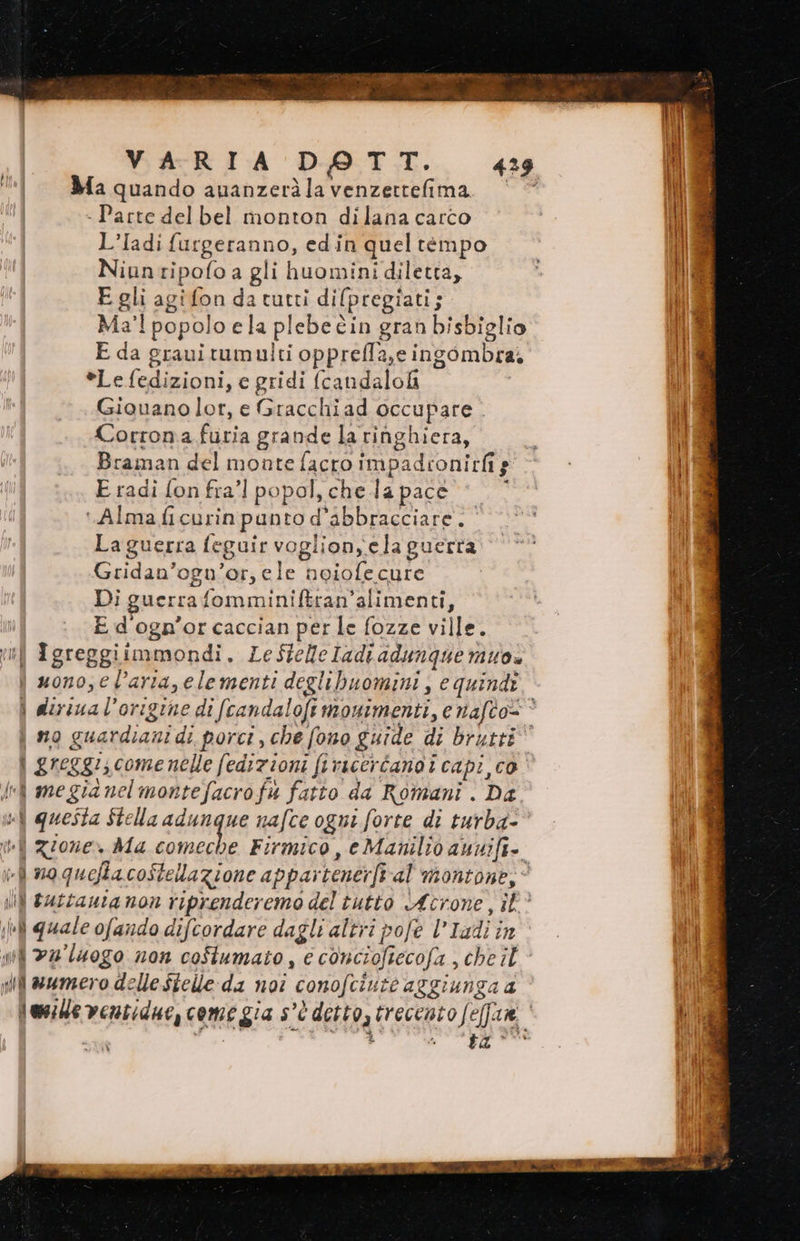 VARIA DOTT. 429
Ma quando auanzerà la venzettesima
Parte del bel monton di lana carco
L'Iadi surgeranno, ed in quel tempo
Niun riposo a gli huomini diletta,
E gli agi son da tutti dispregiati;
Ma'l popolo e la plebe è in gran bisbiglio
E da graui tumulti oppressa, e ingombra.
*Le sedizioni, e gridi scandalosi
Giouano lor, e Gracchi ad occupare
Corron a furia grande la ringhiera,
Braman del monte sacro impadronirsi;
E radi son fra'l popol, che la pace
Alma sicurin punto d'abbracciare.
La guerra seguir voglion, e la guerra
Gridan'ogn'or, e le noiose cure
Di guerra somministran'alimenti,
E d'ogn'or caccian per le sozze ville.
I greggi immondi. Le Stelle Iadi adunque muo-
uono, e l'aria, e le menti degli huomini, e quindi
diriua l'origine di scandalosi mouimenti, e nasco-
no guardiani di porci, che sono guide di brutti
greggi, come nelle sedizioni si ricercano i capi, co
me già nel monte sacro fù fatto da Romani. Da
questa Stella adunque nasce ogni sorte di turba-
zione. Ma comeche Firmico, e Manilio auuisi-
no questa costellazione appartenersi al montone,
tuttauia non riprenderemo del tutto Acrone, il
quale osando discordare dagli altri pose l'Iadi in
vn'luogo non costumato, e conciosiecosa, che il
numero delle Stelle da noi conosciute aggiunga a
mille ventidue, come gia s'è detto, trecento sessan
ta